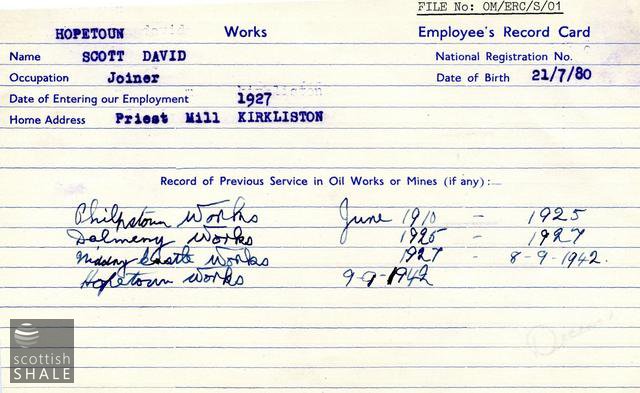 FILE No: OM/ERC/S/01
HOPETOUN Works Employee's Record Card
Name SCOTT DAVID National Registration No.
Occupation Joiner Date of Birth 21/7/80
Date of Entering our Employment 1927
Home Address Priest Mill KIRKLISTON
Record of Previous Service in Oil Works or Mines (if any):—
Philpstoun Works June 1910 - 1925
Dalmeny Works 1925 - 1927
Niddry Castle Works 1927 - 8-9-1942.
Hopetoun Works 9-9-1942
scottish
SHALE